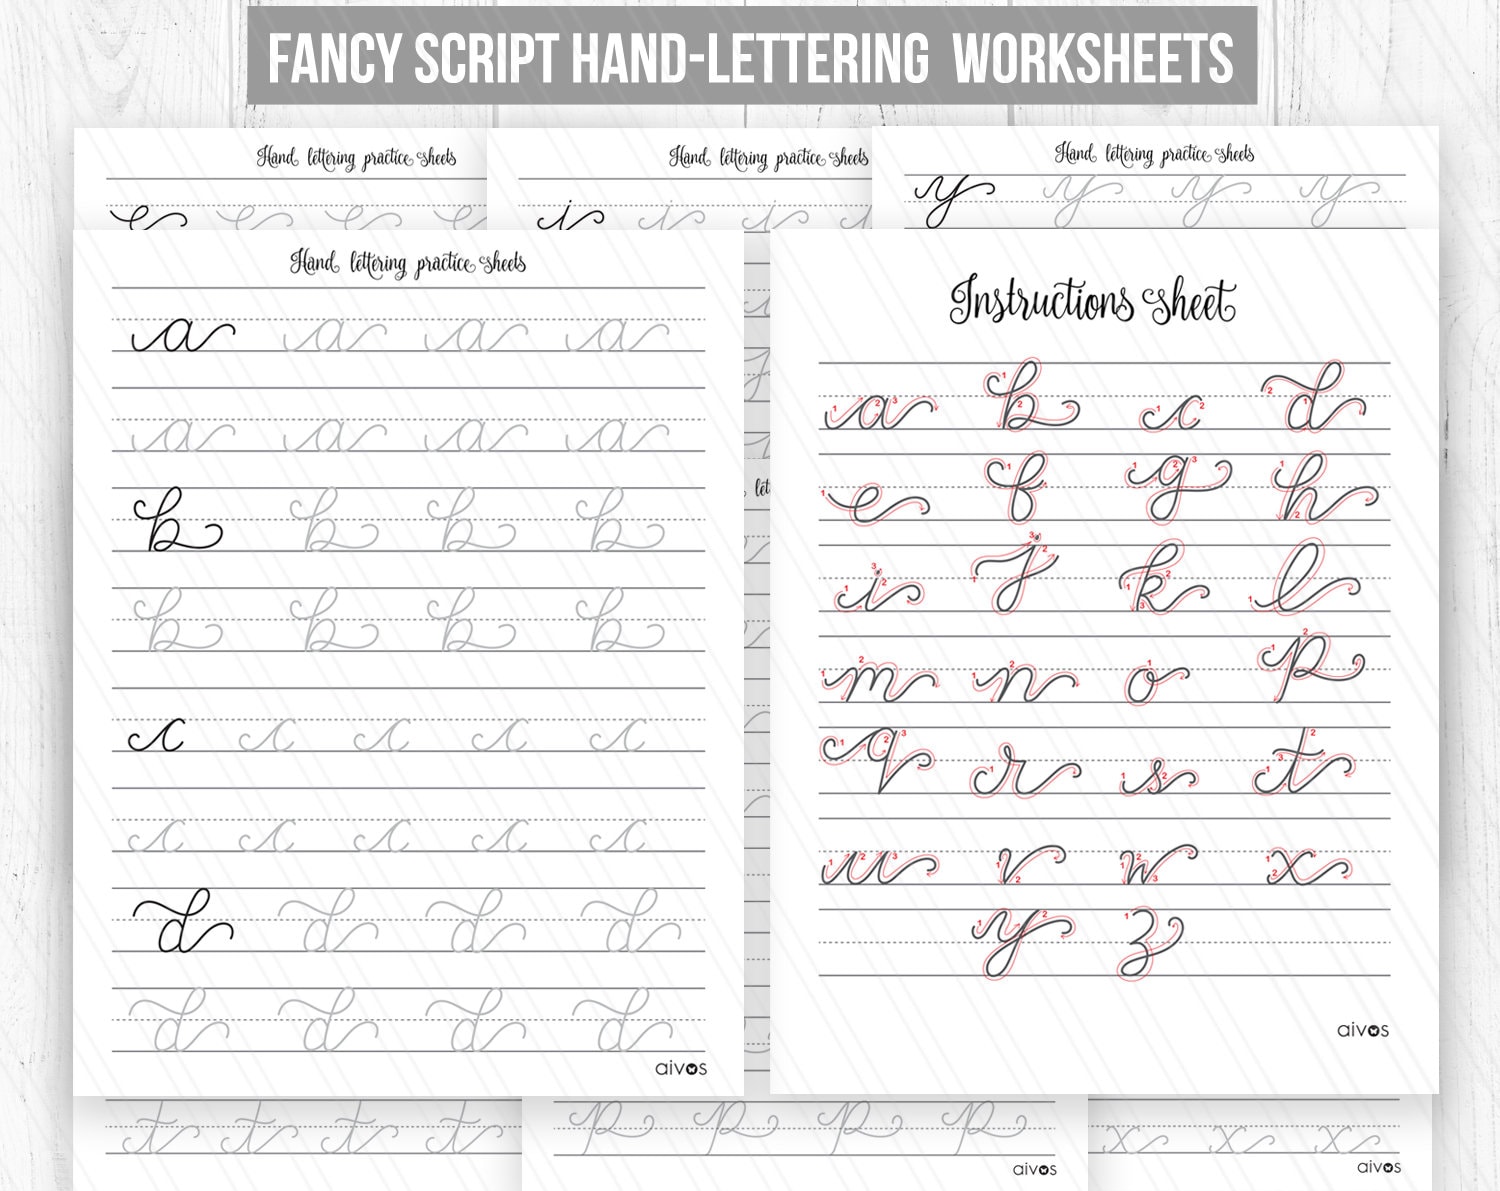 FANCY SCRIPT HAND-LETTERING WORKSHEETS
Hand lettering practice sheets
e e e e
Hand lettering practice sheets
i i i i
Hand lettering practice sheets
y y y y
Hand lettering practice sheets
a a a a
a a a a
b b b b
b b b b
c c c c c
c c c c c
d d d d
d d d d
aivos
Instructions sheet
a b c d
e f g h
i j k l
m n o p
q r s t
u v w x
y z
aivos
t t t t
p p p p
aivos
x x x
aivos